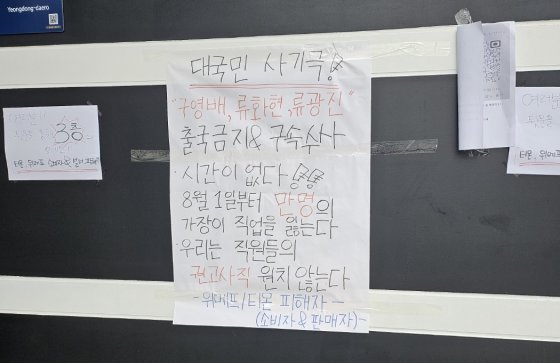 Yeongdong-daero
대국민 사기극!
"구영배, 류화현, 류광진"
출국금지 & 구속수사
· 시간이 없다
8월 1일부터 만명의
가장이 직업을 잃는다
· 우리는 직원들의
권고사직 원치 않는다
- 위메프/티몬 피해자 -
(소비자 & 판매자)-
3층
티몬, 위메프
여러분
티몬, 위메프